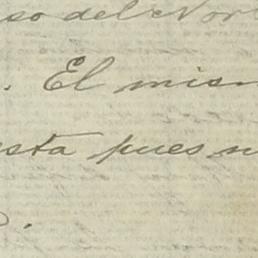 so del Nor
. El mism
sta pues n